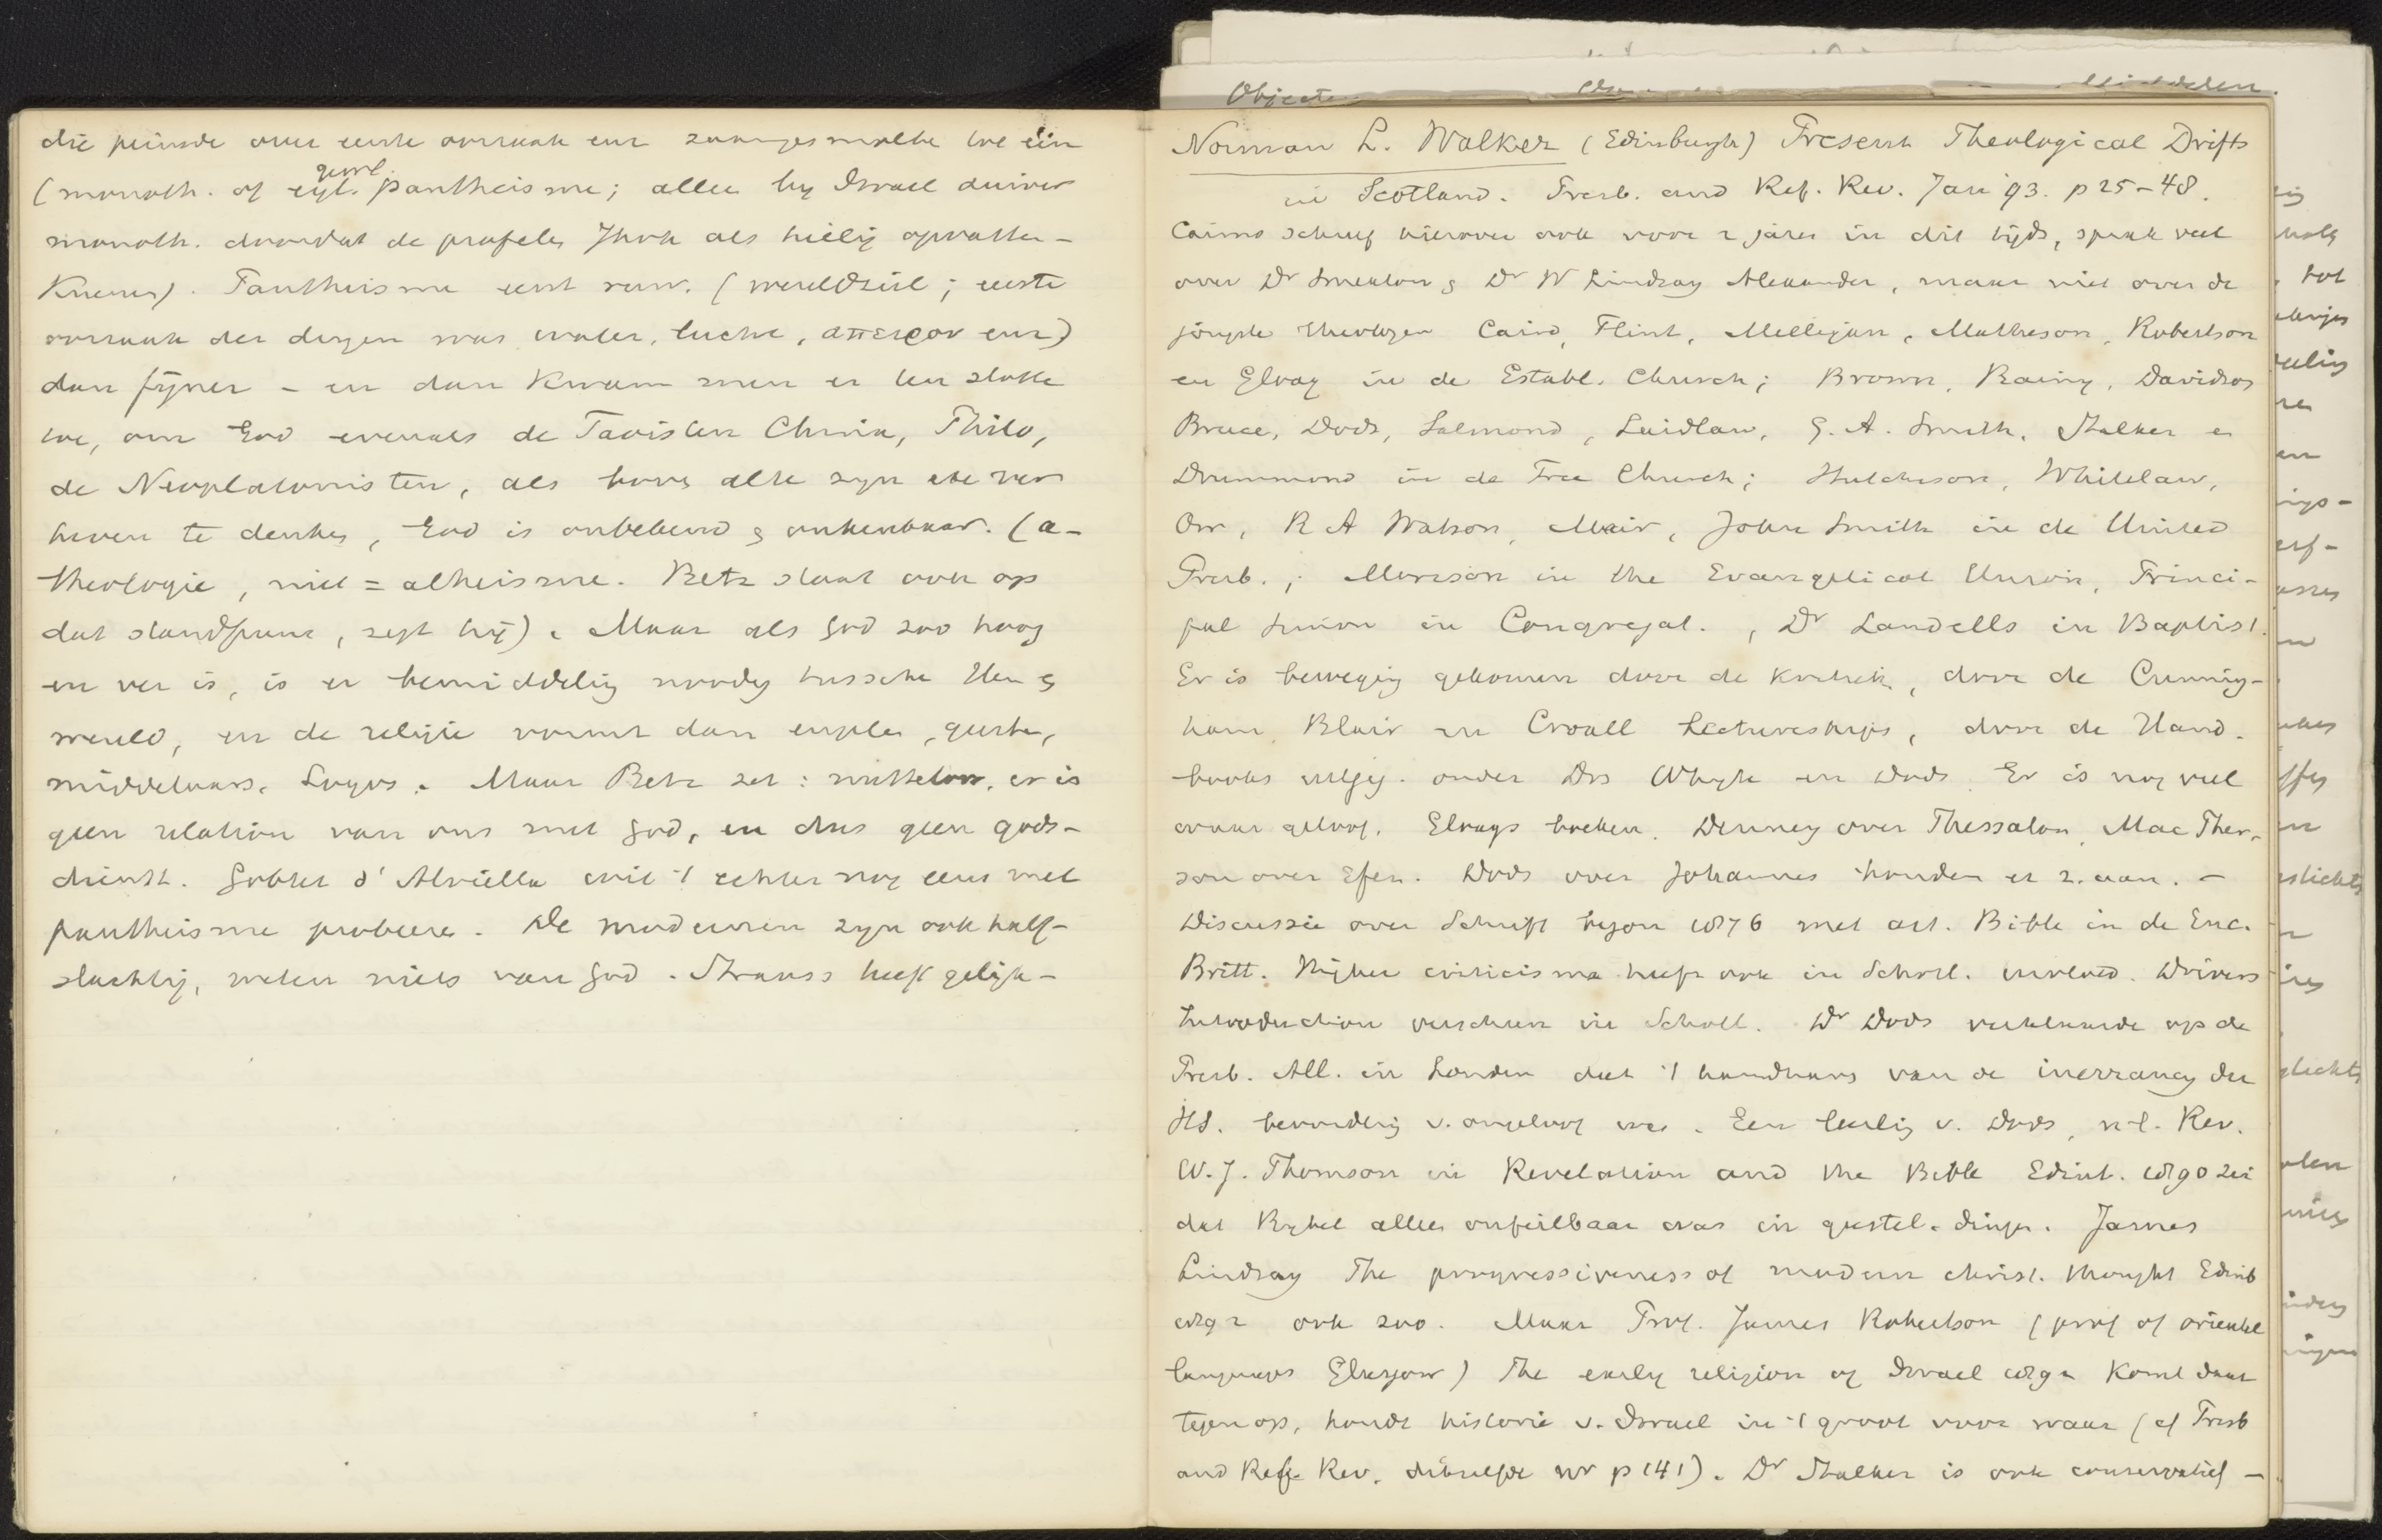 die peinsde over eerste oorzaak enz. zaamgesmolten toe één
gewl.
(monoth. of eyl. pantheisme; alleen by Israel zuiver
monoth. doordat de profeten Jhvh als heilig opvatten –
Kuenen). Pantheisme eerst ruw. (wereldziel; eerste
oorzaak der dingen was water, lucht, απειρον enz)
dan fijner – en dan kwam men er ten slotte
toe, om God evenals de Taoisten China, Philo,
de Neoplatonisten, als boven alle zyn etc ver-
heven te denken, God is onbekend & onkenbaar. (a-
theologie, niet = atheisme. Betz staat ook op
dat standpunt, zegt hij). Maar als God zoo hoog
en ver is, is er bemiddeling noodig tusschen Hem &
wereld, en de religie vormt dan engelen, geesten,
middelaars, Logos. Maar Betz zei: nutteloos, er is
geen relation van ons met God, en dus geen gods-
dienst. Goblet d'Alviella wil 't echter nog eens met
pantheisme probeeren. De modernen zyn ook half-
slachtig, weten niets van God. Strauss heeft gelijk –
Objecten
Middelen.
Norman L. Walker (Edinburgh) Present Theological Drifts
in Scotland. Presb. and Ref. Rev. Jan '93. p 25–48.
Cairns schreef hierover ook voor 2 jaren in dit tijds, sprak veel
over Dr Smeaton & Dr W Lindsay Alexander, maar niet over de
jongste theologen Caird, Flint, Milligan, Matheson, Robertson
en Elvay in de Establ. Church; Brown, Rainy, Davidson
Bruce, Dods, Salmond, Laidlaw, G. A. Smith, Stalker en
Drummond in de Free Church; Hutchison, Whitelaw,
Orr, R A Watson, Mair, John Smith in de United
Presb.; Morison in the Evangelical Union, Princi-
pal Simon in Congregat., Dr Landells in Baptist.
Er is beweging gekomen door de kritiek, door de Cunning-
ham, Blair en Croall Lectureships, door de Hand-
books uitgeg. onder Drs Whyte en Dods. Er is nog veel
waar geloof. Elvays boeken. Denney over Thessalon, Mac Pher-
son over Efez. Dods over Johannes houden er z. aan. –
Discussie over Schrift begon 1876 met art. Bible in de Enc.
Britt. Higher criticisme heeft ook in Schotl. invloed. Drivers
Introduction verscheen in Schotl. Dr Dods verklaarde op de
Presb. All. in Londen dat 't handhaven van de inerrancy der
HS. bevordering v. ongeloof was. Een leerling v. Dods, n-l. Rev.
W. J. Thomson in Revelation and the Bible Edinb. 1890 zei
dat Bybel alleen onfeilbaar was in geestel. dingen. James
Lindsay The progressiveness of modern christ. thought Edinb
1892 ook zoo. Maar Prof. James Robertson (prof of oriental
languages Glasgow) The early religion of Israel 1892 komt daar
tegen op, houdt historie v. Israel in 't groot voor waar (cf Presb
and Ref. Rev. ditzelfde nr p 141). Dr Stalker is ook conservatief –